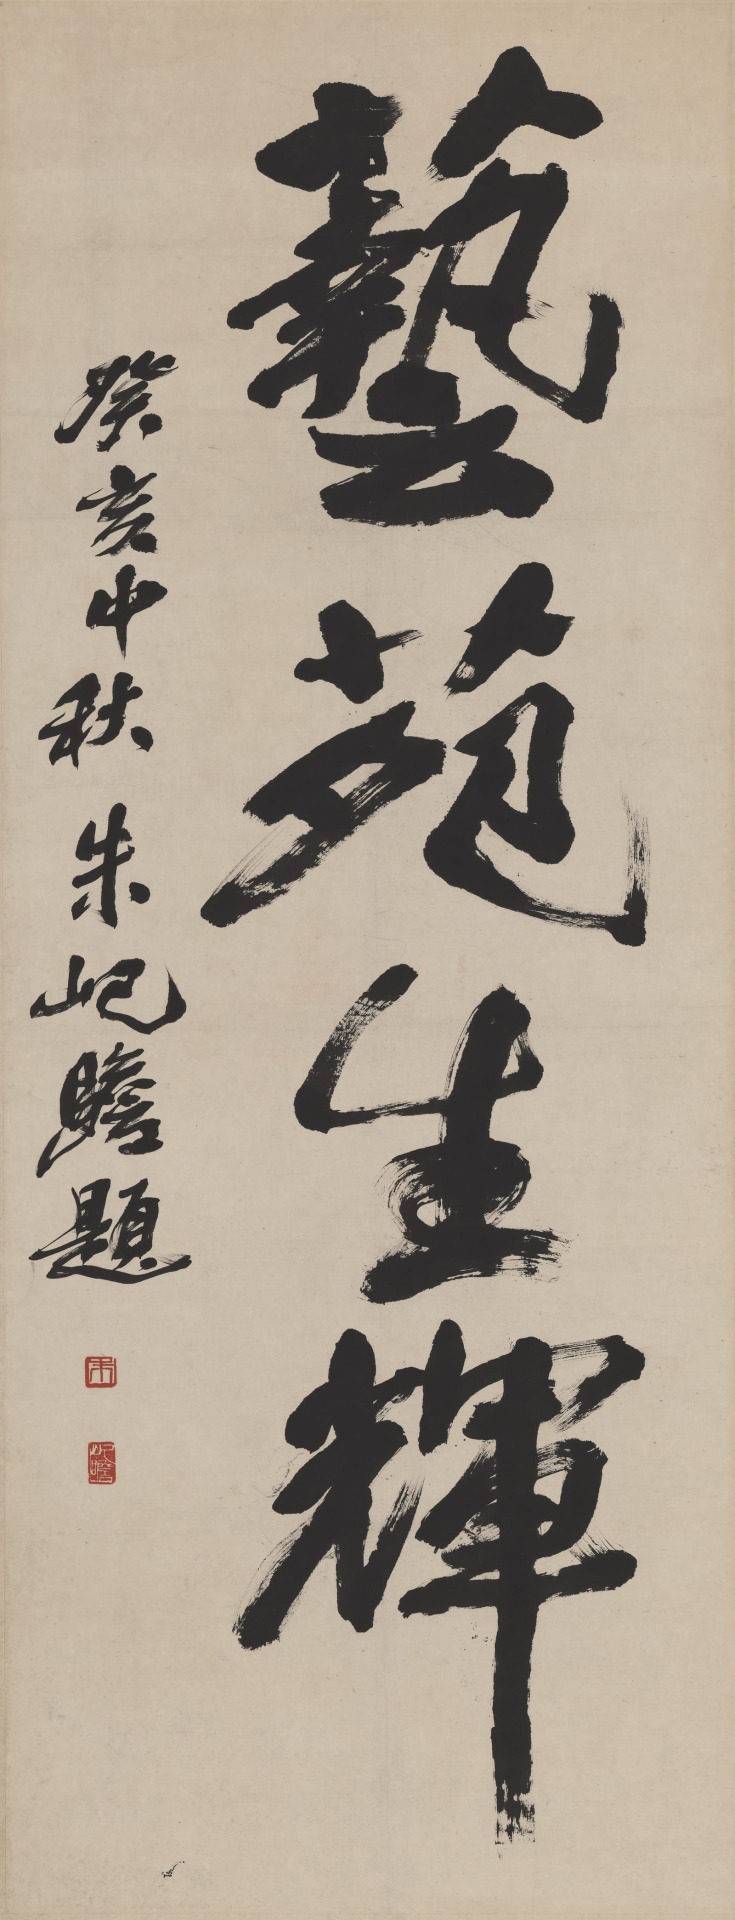 藝苑生輝
癸亥中秋朱屺瞻題
朱
屺瞻